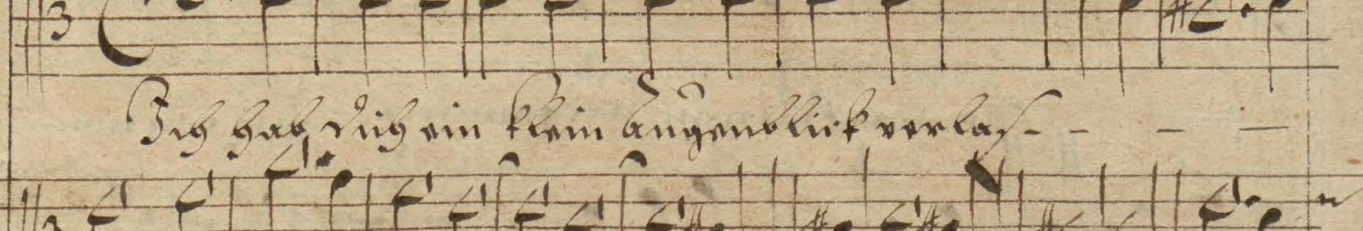 3
Ich hab dich ein klein Augenblick verlas- - - -
3